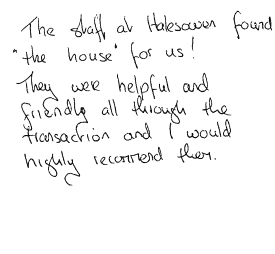 The staff at Halesowen found
"the house" for us!
They were helpful and
friendly all through the
transaction and I would
highly recommend them.